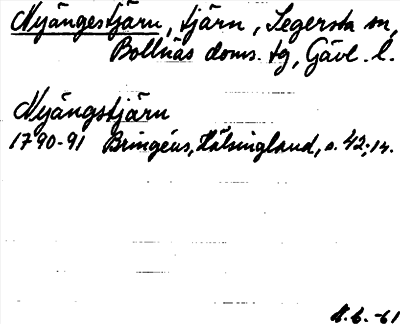 Nyängestjärn, tjärn, Segersta sn,
Bollnäs doms. tg, Gävl. l.
Nyängstjärn
1790-91 Bringéus, Hälsingland, s. 42; 14.
-61